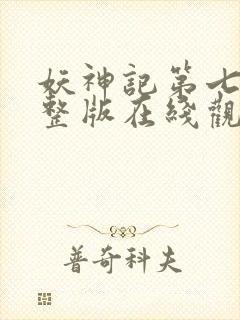 妖神記第七
整版在綫觀
普奇科夫